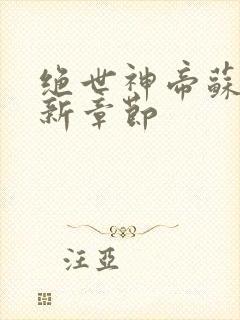 绝世神帝蘇
新章節
汪亞